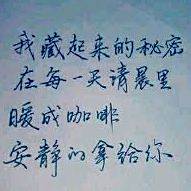 我藏起来的秘密
在每一天清晨里
暖成咖啡
安静的拿给你